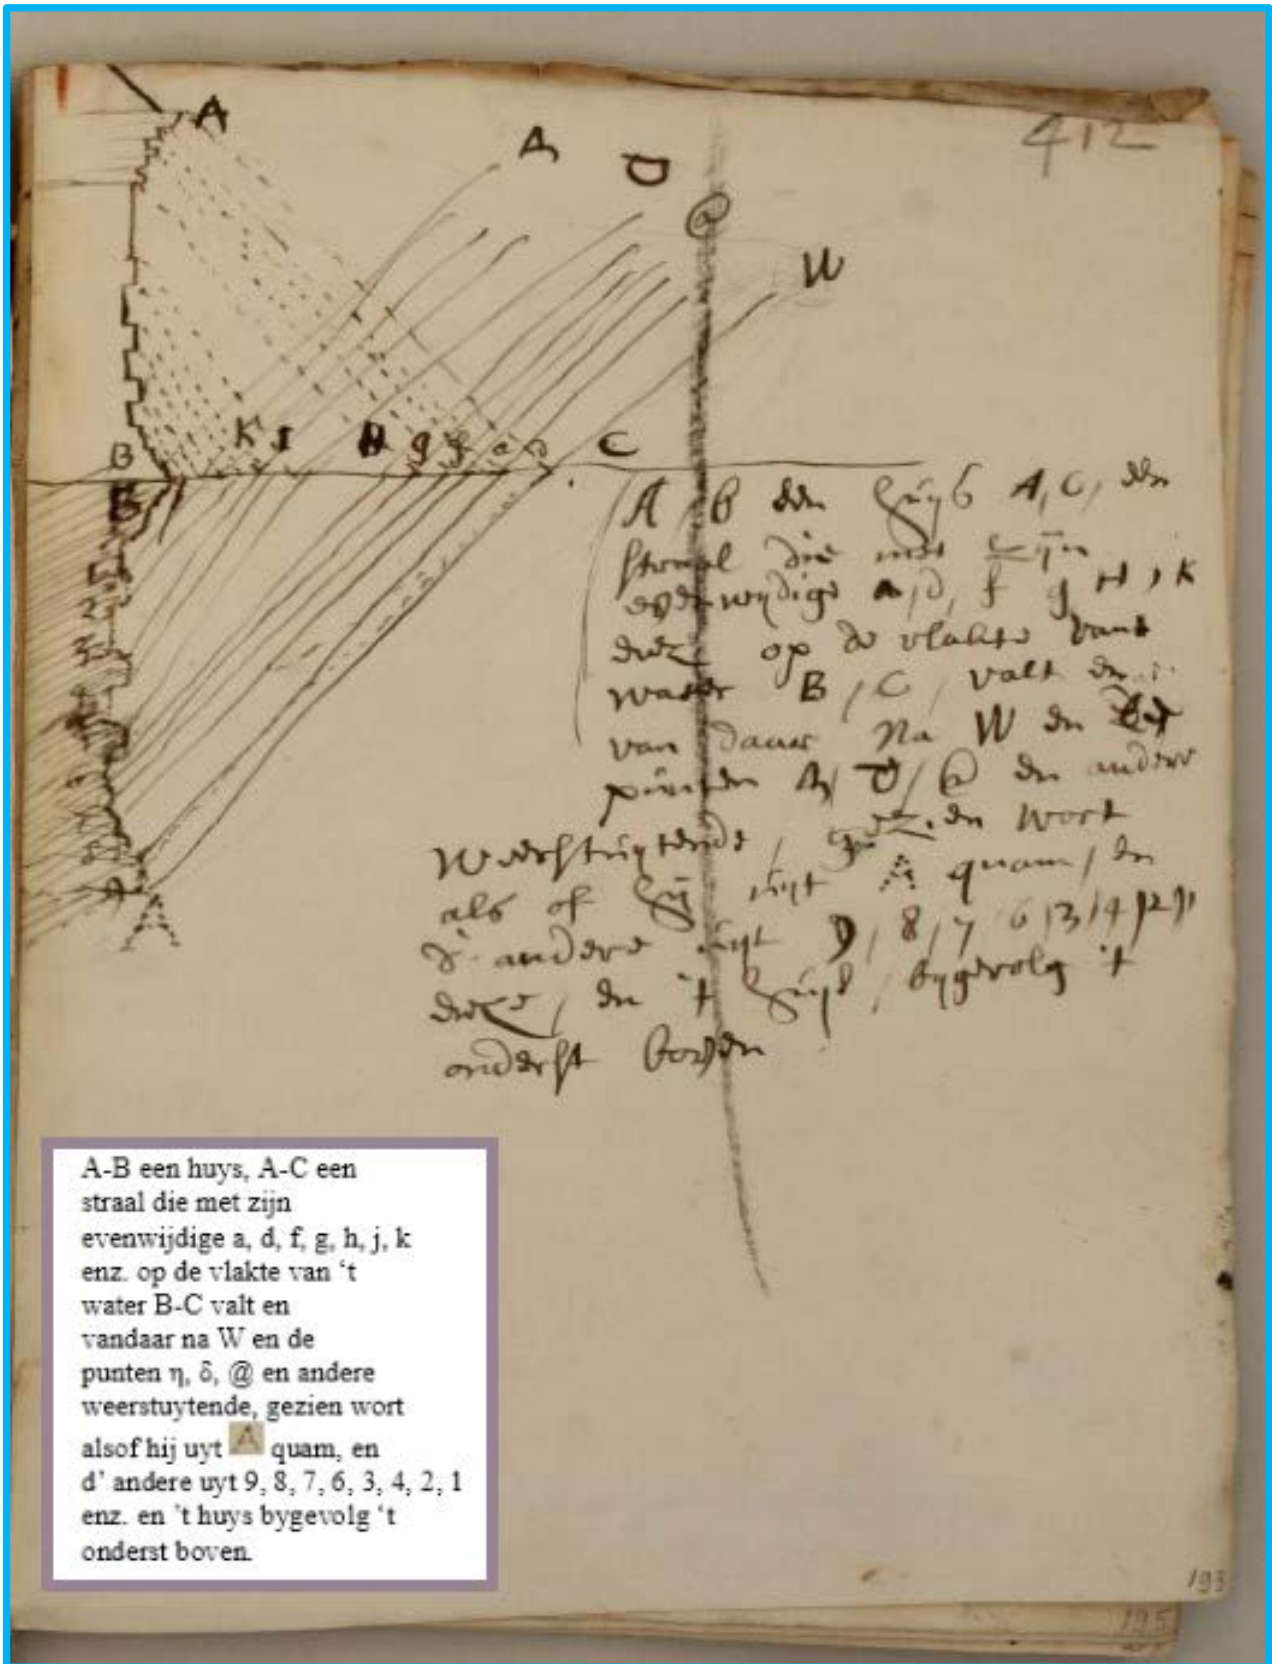 A
A
D
412
@
W
B
K I H g f a d C
A, B een huys A, C, een
straal die met zijn
evenwydige a, d, f g H, K
enz op de vlakte vant
water B, C, valt en
van daar Na W en de
punten D, @ en andere
weerstuytende, gezien wort
als of hij uyt A quam, en
d'andere uyt 9, 8, 7, 6, 3, 4, 2, 1,
enz, en 't huys, bygevolg 't
onderst boven
B
1
2
3
A
A
A-B een huys, A-C een
straal die met zijn
evenwijdige a, d, f, g, h, j, k
enz. op de vlakte van ‘t
water B-C valt en
vandaar na W en de
punten η, δ, @ en andere
weerstuytende, gezien wort
alsof hij uyt A quam, en
d’ andere uyt 9, 8, 7, 6, 3, 4, 2, 1
enz. en ’t huys bygevolg ‘t
onderst boven.
193
195